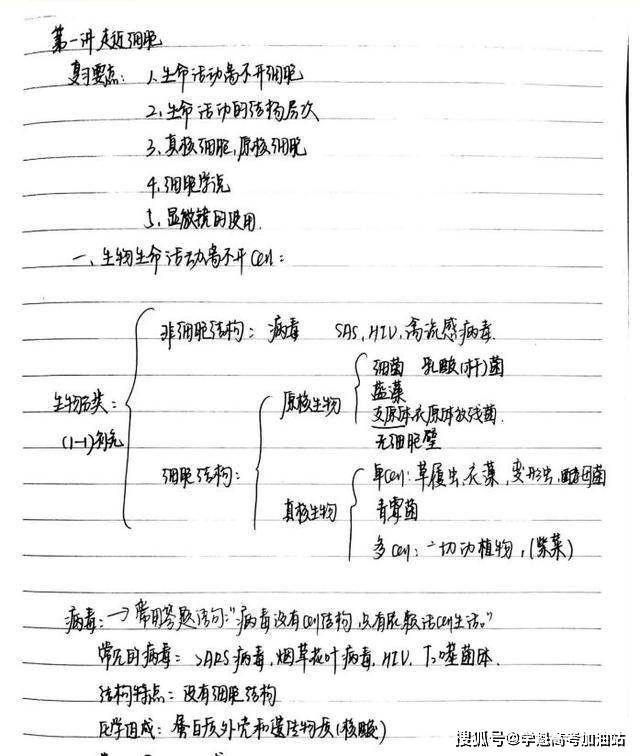 第一讲 走近细胞
复习要点: 1.生命活动离不开细胞
2.生命活动的结构层次
3.真核细胞,原核细胞
4.细胞学说
5.显微镜的使用.
一、生物生命活动离不开cell:
非细胞结构: 病毒 SAS,HIV,禽流感病毒.
细菌 乳酸(杆)菌
原核生物 蓝藻
生物分类: 支原体衣原体放线菌.
(1-1)补充 无细胞壁
细胞结构: 单cell:草履虫,衣藻,变形虫,酵母菌
真核生物 青霉菌
多cell:一切动植物,(紫菜)
病毒:→常用答题语句:"病毒没有cell结构,只有依赖活cell生活。"
常见的病毒: SARS病毒,烟草花叶病毒,HIV,T₂噬菌体.
结构特点:没有细胞结构
化学组成:蛋白质外壳和遗传物质(核酸)
搜狐号@学魁高考加油站